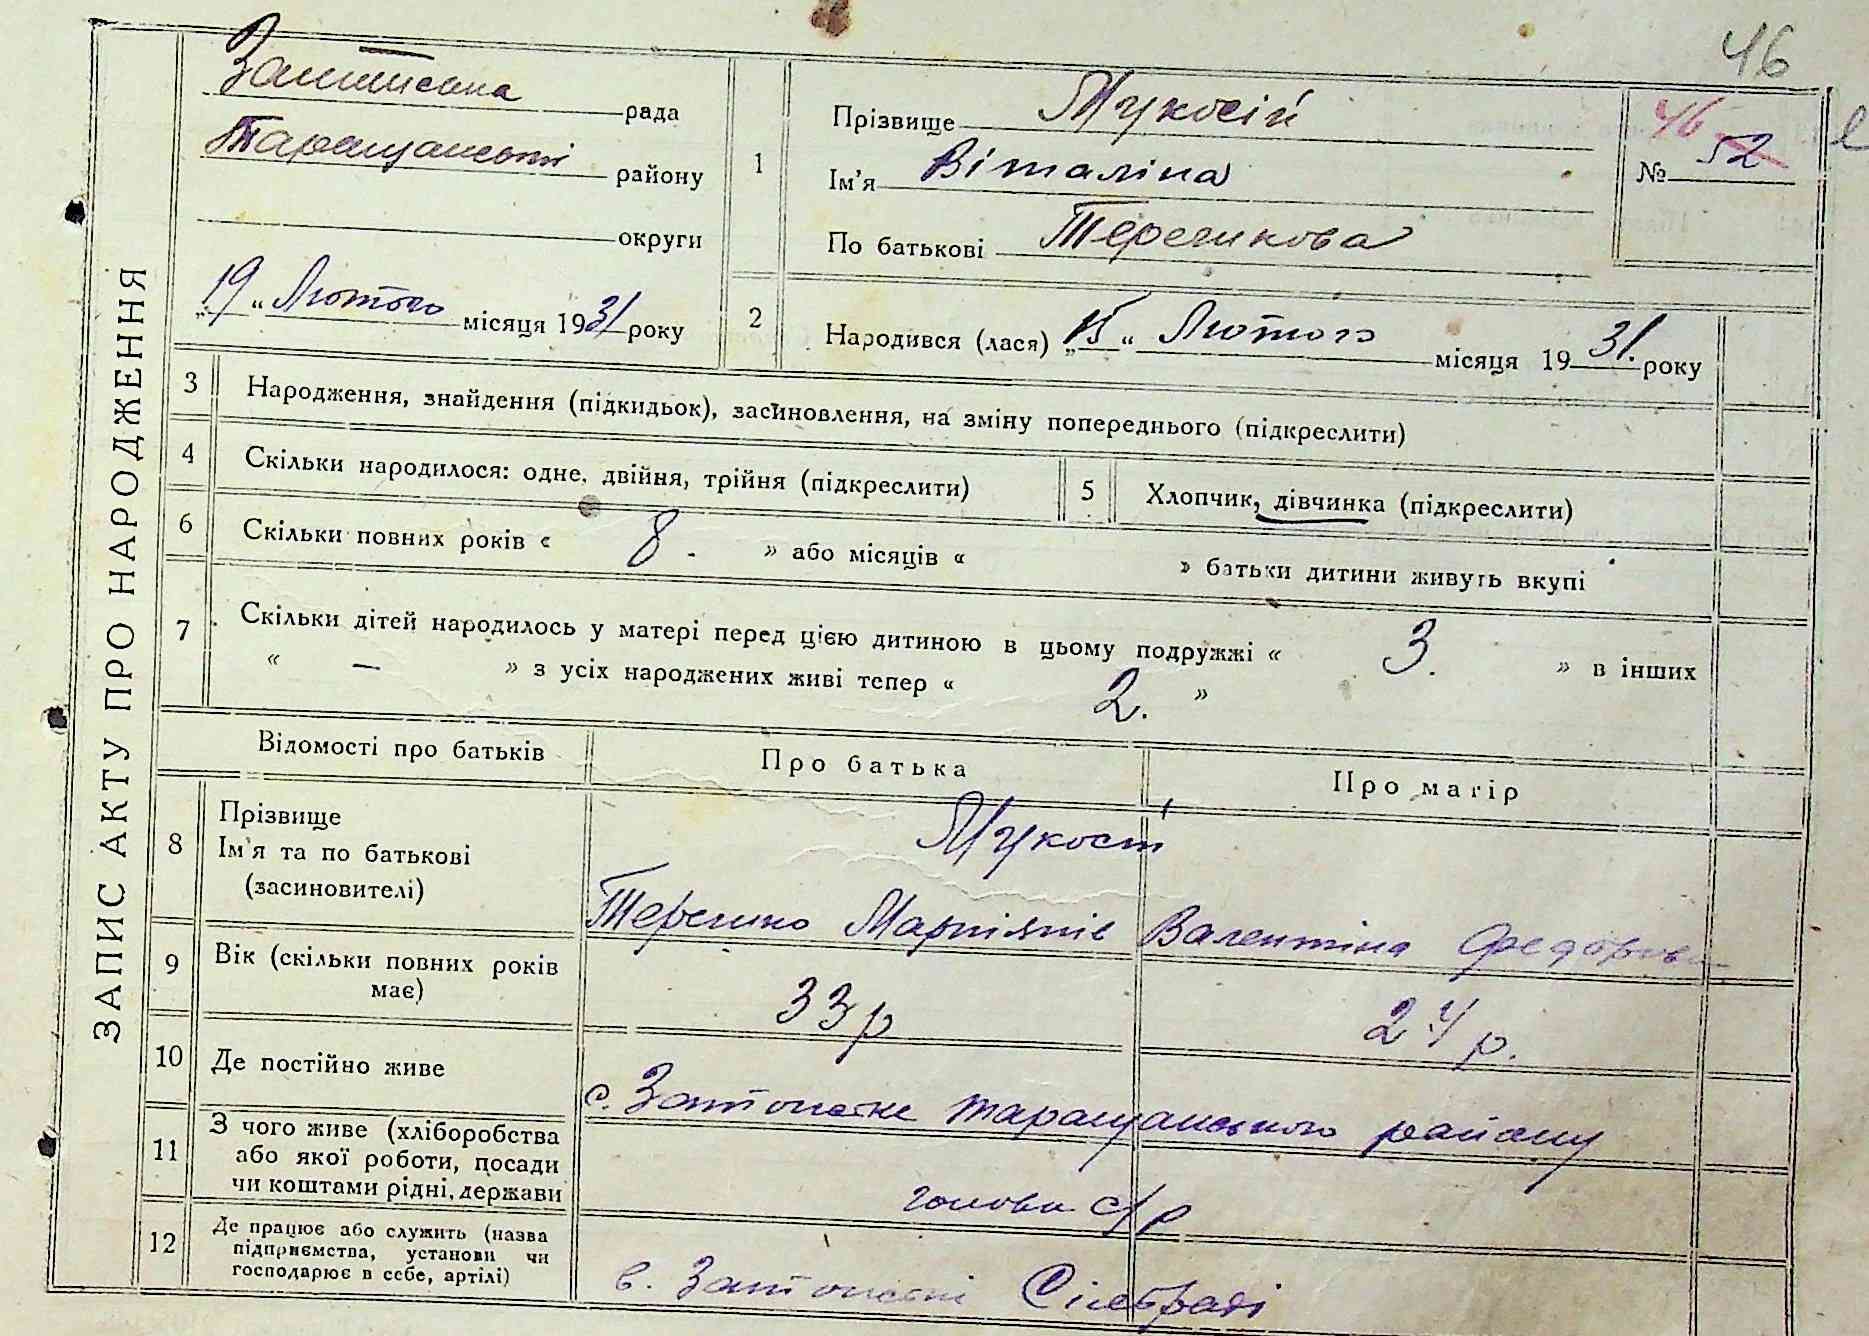 46
ЗАПИС АКТУ ПРО НАРОДЖЕННЯ
рада
Таращанський району
округи
„19“ Лютого місяця 1931 року
1
Прізвище Мукосій
Ім'я Віталіна
По батькові Терешкова
46
№ 52
2
Народився (лася) „15“ Лютого місяця 1931. року
3 Народження, знайдення (підкидьок), засиновлення, на зміну попереднього (підкреслити)
4 Скільки народилося: одне, двійня, трійня (підкреслити)
5 Хлопчик, дівчинка (підкреслити)
6 Скільки повних років « 8. » або місяців « » батьки дитини живуть вкупі
7 Скільки дітей народилось у матері перед цією дитиною в цьому подружжі « 3. » в інших
« — » з усіх народжених живі тепер « 2. »
Відомості про батьків Про батька Про матір
8 Прізвище
Ім'я та по батькові
(засиновителі)
Мукосій
Терешко Валентіна Федорівна
9 Вік (скільки повних років
має)
33 р 24 р.
10 Де постійно живе
с. Таращанського району
11 З чого живе (хліборобства
або якої роботи, посади
чи коштами рідні, держави
голова с/р
12 Де працює або служить (назва
підприємства, установи чи
господарює в себе, артілі)
в. Сільраді